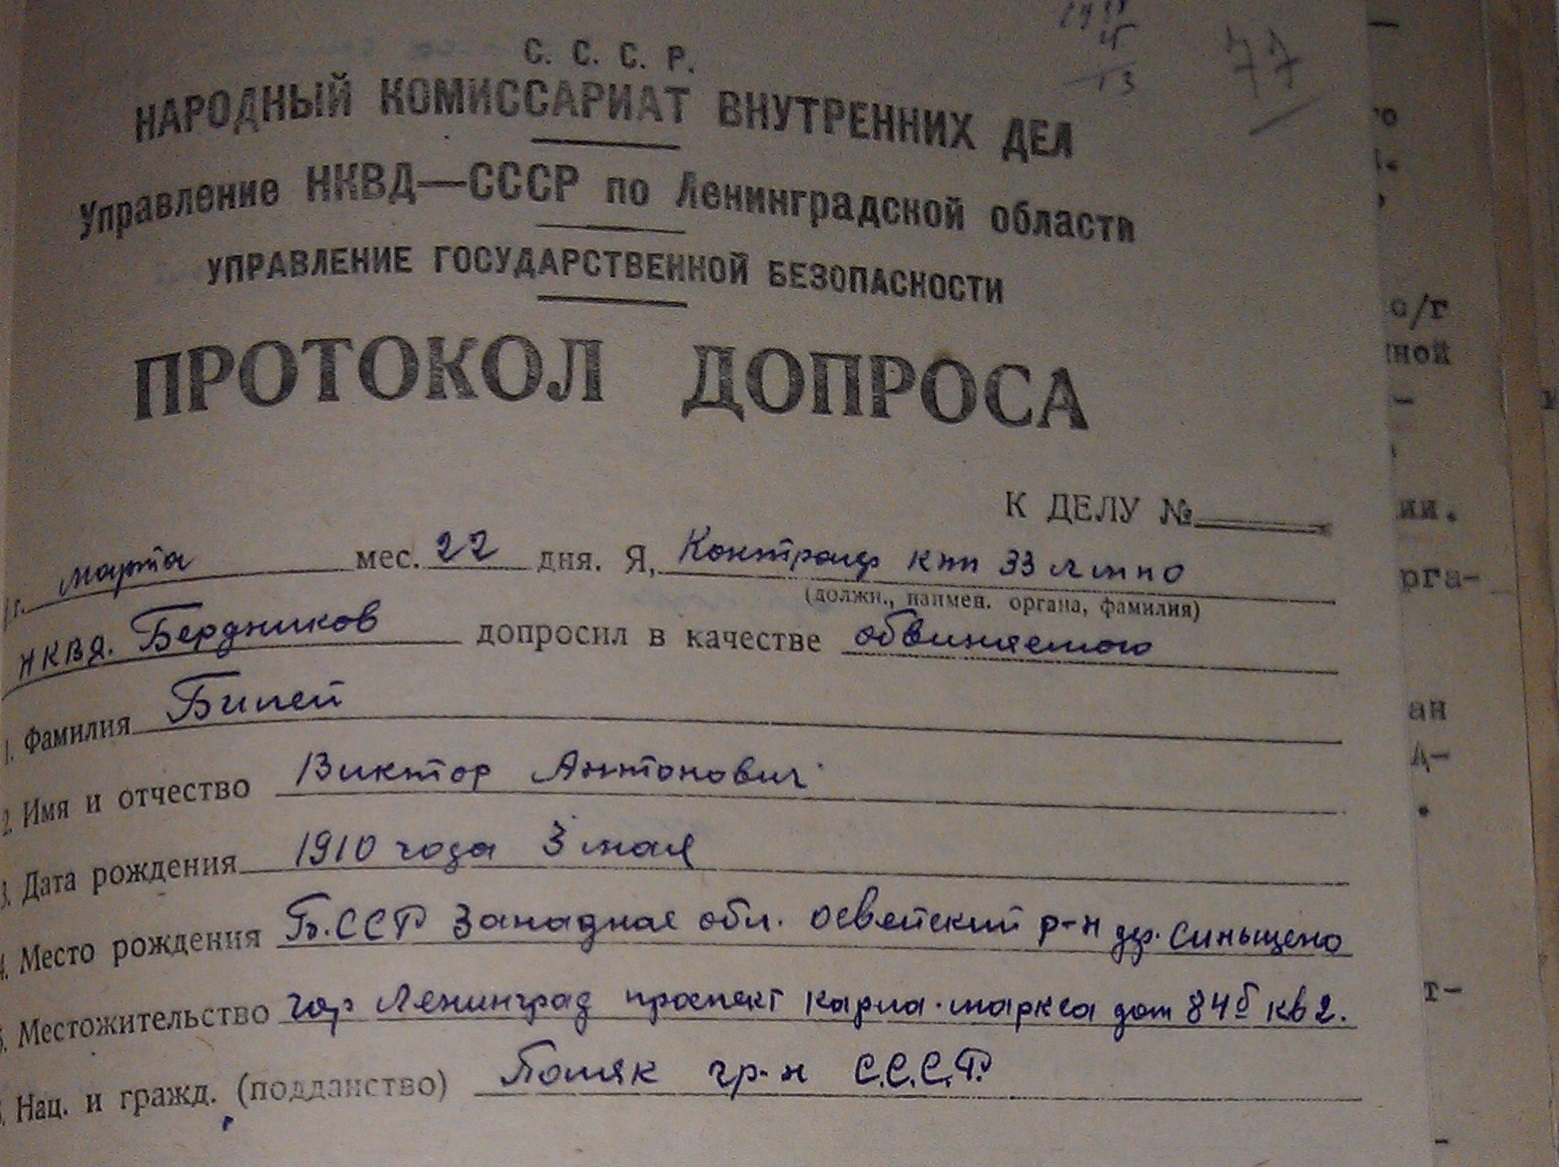 77
С. С. С. Р.
НАРОДНЫЙ КОМИССАРИАТ ВНУТРЕННИХ ДЕЛ
Управление НКВД—СССР по Ленинградской области
УПРАВЛЕНИЕ ГОСУДАРСТВЕННОЙ БЕЗОПАСНОСТИ
ПРОТОКОЛ ДОПРОСА
К ДЕЛУ №
г. марта мес. 22 дня. Я, 33
(должн., наимен. органа, фамилия)
НКВД. Бердников допросил в качестве обвиняемого
1. Фамилия Билей
2. Имя и отчество Виктор Антонович
3. Дата рождения 1910 года 3 мая
4. Место рождения Б.ССР Западная обл. Освейский р-н др. Синьщено
5. Местожительство гор Ленинград проспект Карла-Маркса дом 84б кв 2.
6. Нац. и гражд. (подданство) Поляк гр-н С.С.С.Р.
о/г
ной
ии.
рга-
ан
д-
т-